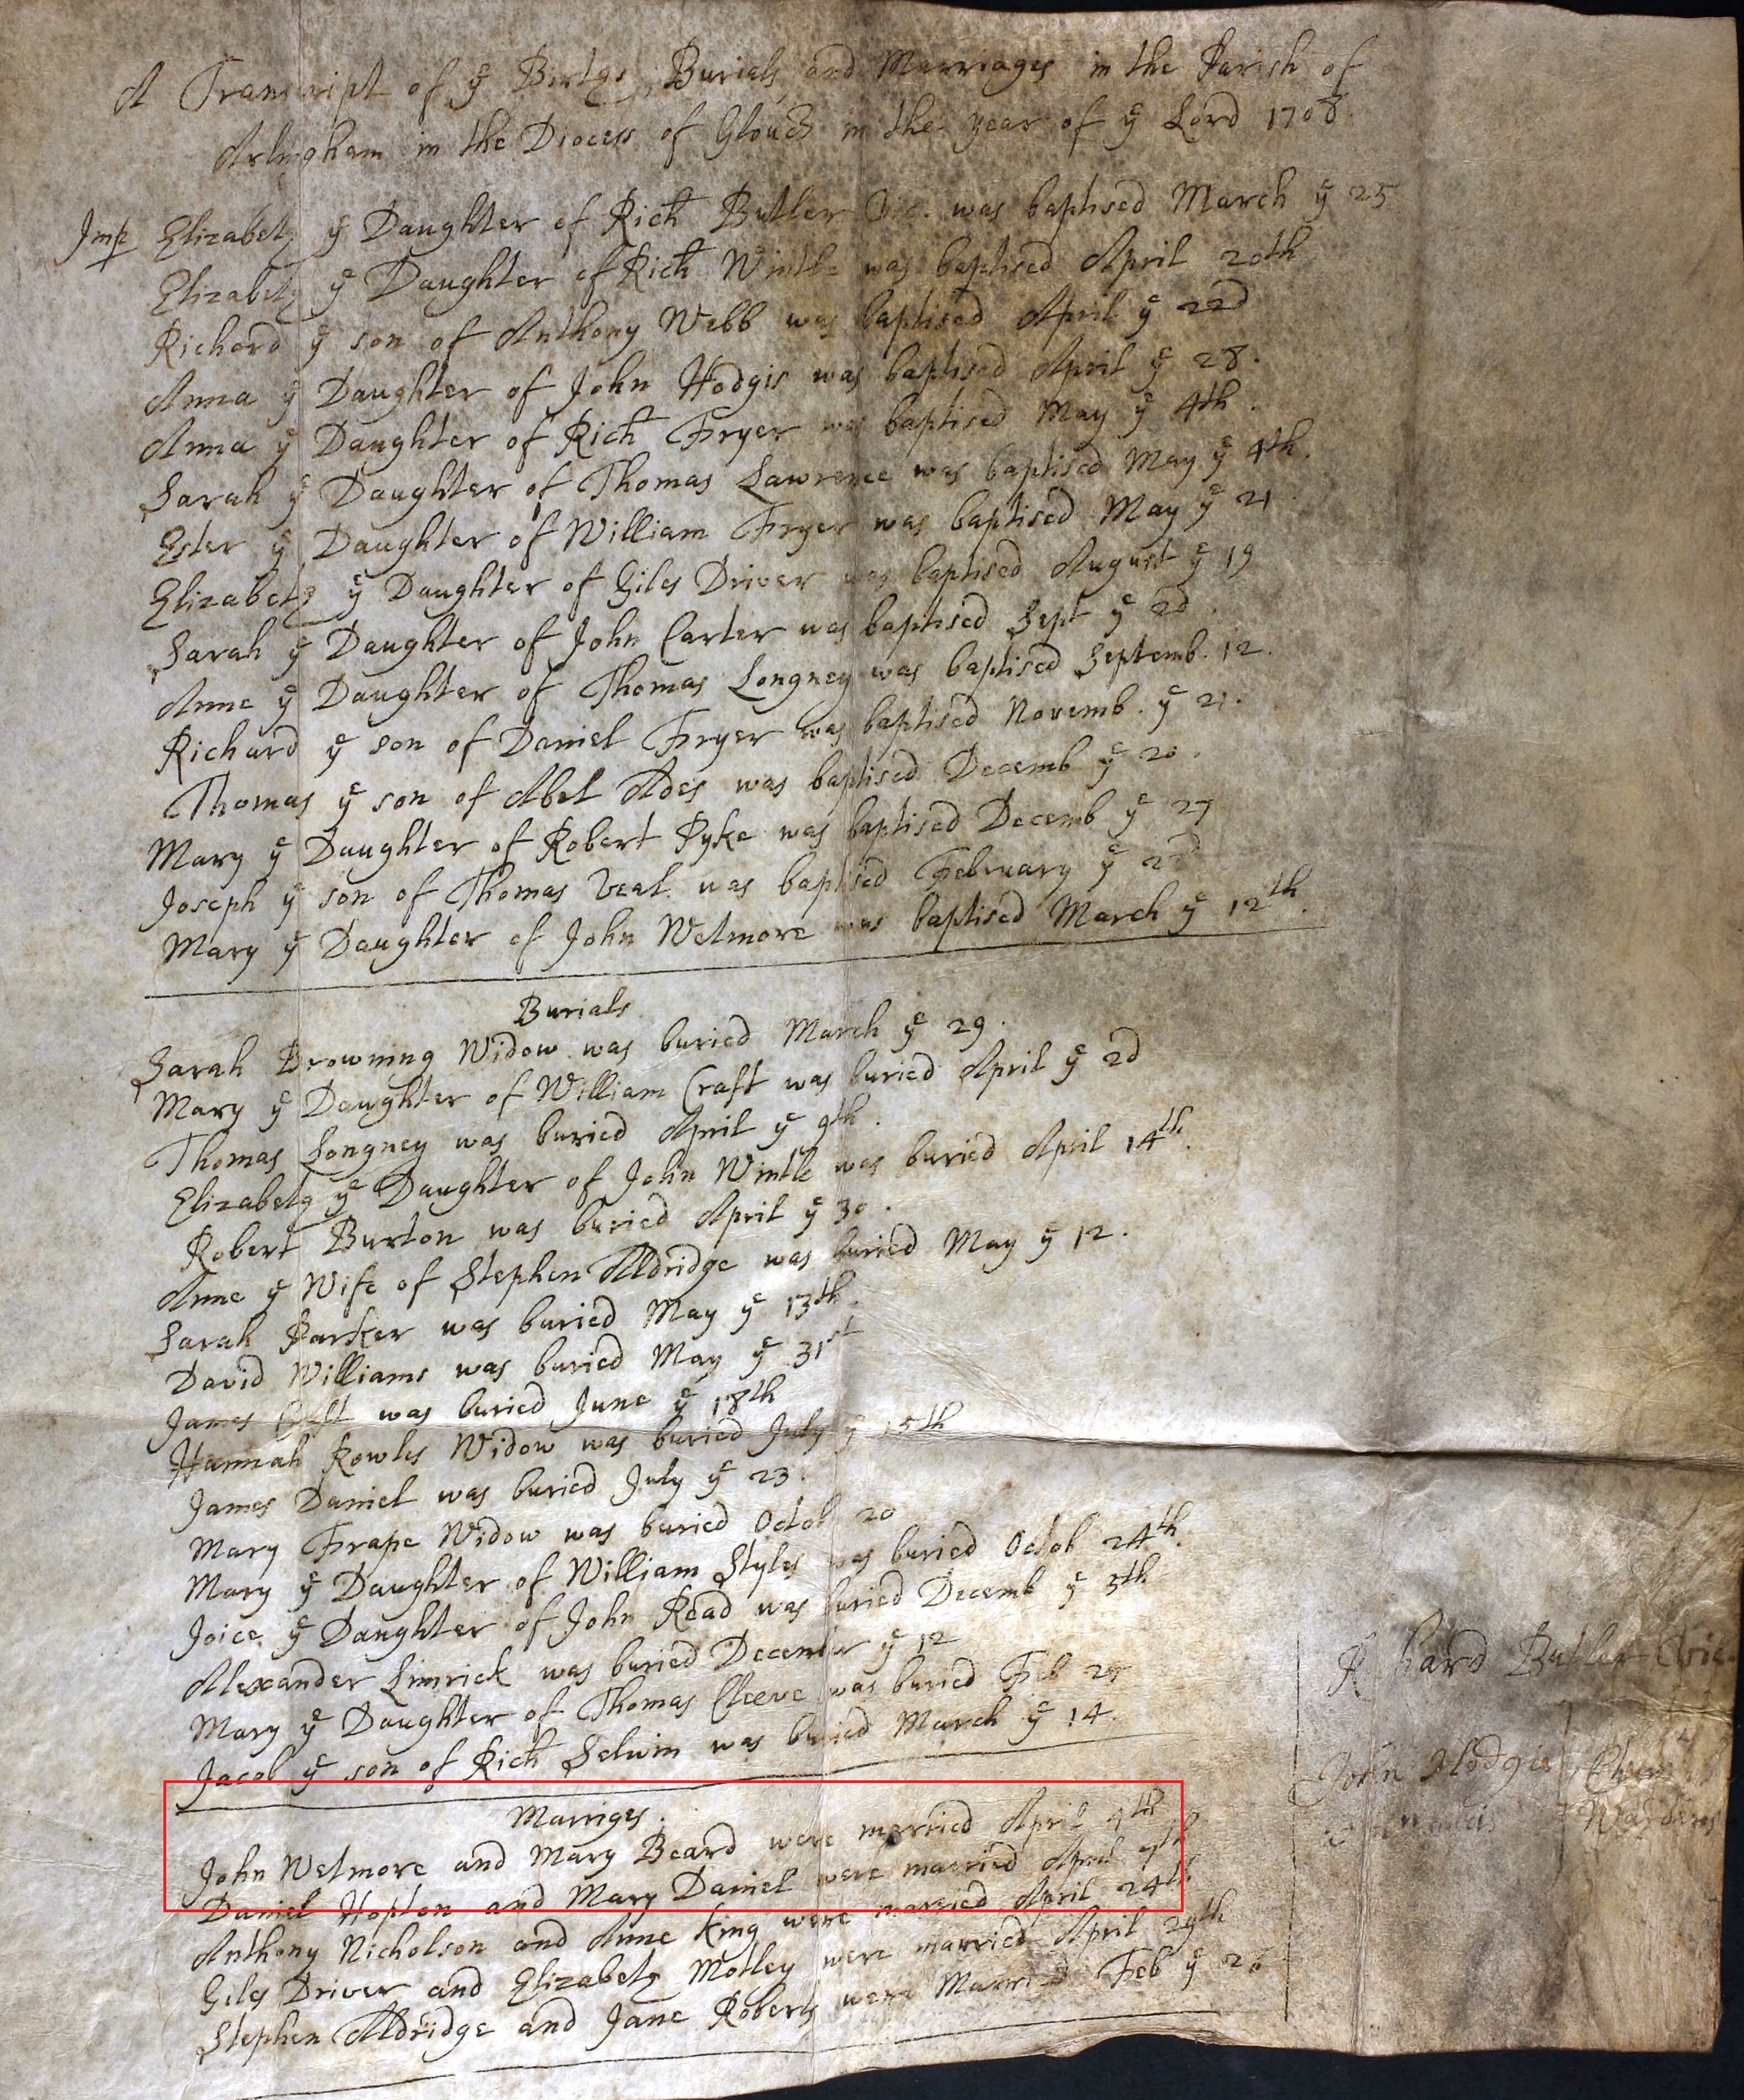 A Transcript of yᵉ Births, Burials and Marriages in the Parish of
Arlingham in the Diocess of Gloucʳ in the year of yᵉ Lord 1708.
Imp Elizabeth yᵉ Daughter of Rich Butler was baptised March yᵉ 25
Elizabeth yᵉ Daughter of Rich Wintle was baptised April 20th
Richard yᵉ son of Anthony Webb was baptised April yᵉ 22d
Anna yᵉ Daughter of John Hodgis was baptised April yᵉ 28.
Anna yᵉ Daughter of Rich Fryer was baptised May yᵉ 4th.
Sarah yᵉ Daughter of Thomas Lawrence was baptised May yᵉ 4th.
Ester yᵉ Daughter of William Fryer was baptised May yᵉ 21.
Elizabeth yᵉ Daughter of Giles Driver was baptised August yᵉ 19
Sarah yᵉ Daughter of John Carter was baptised Sept yᵉ 2d.
Anne yᵉ Daughter of Thomas Longney was baptised Septemb. 12.
Richard yᵉ son of Daniel Fryer was baptised Novemb. yᵉ 21.
Thomas yᵉ son of Abel Ades was baptised Decemb yᵉ 20.
Mary yᵉ Daughter of Robert Pyke was baptised Decemb yᵉ 27
Joseph yᵉ son of Thomas Veal was baptised February yᵉ 22d
Mary yᵉ Daughter of John Wetmore was baptised March yᵉ 12th.
Burials
Sarah Browning Widow was buried March yᵉ 29.
Mary yᵉ Daughter of William Craft was buried April yᵉ 2d
Thomas Longney was buried April yᵉ 9th.
Elizabeth yᵉ Daughter of John Wintle was buried April 14th.
Robert Burton was buried April yᵉ 30.
Anne yᵉ Wife of Stephen Aldridge was buried May yᵉ 12.
Sarah Parker was buried May yᵉ 13th.
David Williams was buried May yᵉ 31st
James was buried June yᵉ 18th
Hannah Rowles Widow was buried July yᵉ 15th
James Daniel was buried July yᵉ 23.
Mary Frape Widow was buried Octob 20
Mary yᵉ Daughter of William Styles was buried Octob 24th.
Joice yᵉ Daughter of John Read was buried Decemb yᵉ 5th
Alexander Limrick was buried December yᵉ 12
Mary yᵉ Daughter of Thomas Cleeve was buried Feb
Jacob yᵉ son of Rich Selwin was buried March yᵉ 14.
Richard Butler Vic.
John Hodgis
Marriges.
John Wetmore and Mary Beard were married April
Daniel Hopton and Mary Daniel were married April
Anthony Nicholson and Anne King were married April 24th.
Giles Driver and Elizabeth Motley were married April 29th
Stephen Aldridge and Jane Roberts were Married Feb yᵉ 26